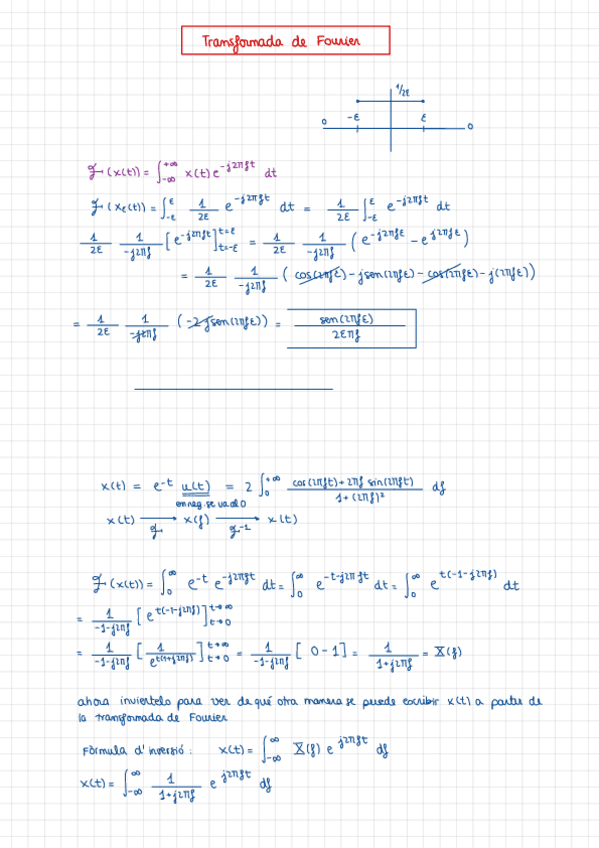 Transformada de Fourier
1/2ε
0 -ε ε 0
F(x(t)) = ∫_{-∞}^{+∞} x(t) e^{-j2πft} dt
F(x_ε(t)) = ∫_{-ε}^{ε} 1/2ε e^{-j2πft} dt = 1/2ε ∫_{-ε}^{ε} e^{-j2πft} dt
1/2ε 1/-j2πf [e^{-j2πft}]_{t=-ε}^{t=ε} = 1/2ε 1/-j2πf (e^{-j2πfε} - e^{j2πfε})
= 1/2ε 1/-j2πf (cos(2πfε) - jsen(2πfε) - cos(2πfε) - j(2πfε))
= 1/2ε 1/-j2πf (-2jsen(2πfε)) = sen(2πfε)/2επf
x(t) = e^{-t} u(t) = 2 ∫_0^{+∞} cos(2πft)+2πf sin(2πft)/1+(2πf)² df
en neg. se va al 0
x(t) →F x(f) →F^{-1} x(t)
F(x(t)) = ∫_0^∞ e^{-t} e^{-j2πft} dt = ∫_0^∞ e^{-t-j2πft} dt = ∫_0^∞ e^{t(-1-j2πf)} dt
= 1/-1-j2πf [e^{t(-1-j2πf)}]_{t→0}^{t→∞}
= 1/-1-j2πf [1/e^{t(1+j2πf)}]_{t→0}^{t→∞} = 1/-1-j2πf [0-1] = 1/1+j2πf = X(f)
ahora inviertelo para ver de qué otra manera se puede escribir x(t) a partir de
la transformada de Fourier
Fòrmula d'inversió: x(t) = ∫_{-∞}^{∞} X(f) e^{j2πft} df
x(t) = ∫_{-∞}^{∞} 1/1+j2πf e^{j2πft} df